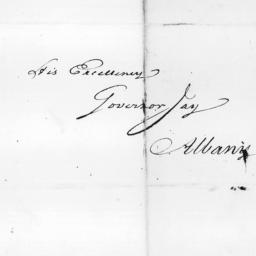 His Excellency
Governor Jay
Albany